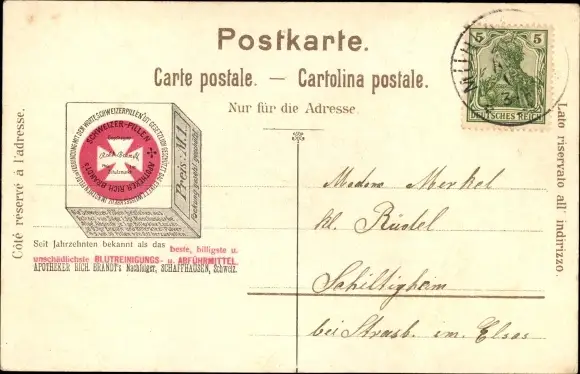 Postkarte.
Carte postale. — Cartolina postale.
Nur für die Adresse.
5 5
DEUTSCHES REICH
Côté réservé à l'adresse.
Lato riservato all' indirizzo.
SCHWEIZER-PILLEN
APOTHEKER RICH. BRANDT's
Preis: M. 1.
Seit Jahrzehnten bekannt als das beste, billigste u.
unschädlichste BLUTREINIGUNGS- u. ABFÜHRMITTEL.
APOTHEKER RICH. BRANDT's Nachfolger, SCHAFFHAUSEN, Schweiz.
Madame Merkel
kl. Rüstel
Schiltigheim
bei Strasb. im Elsas